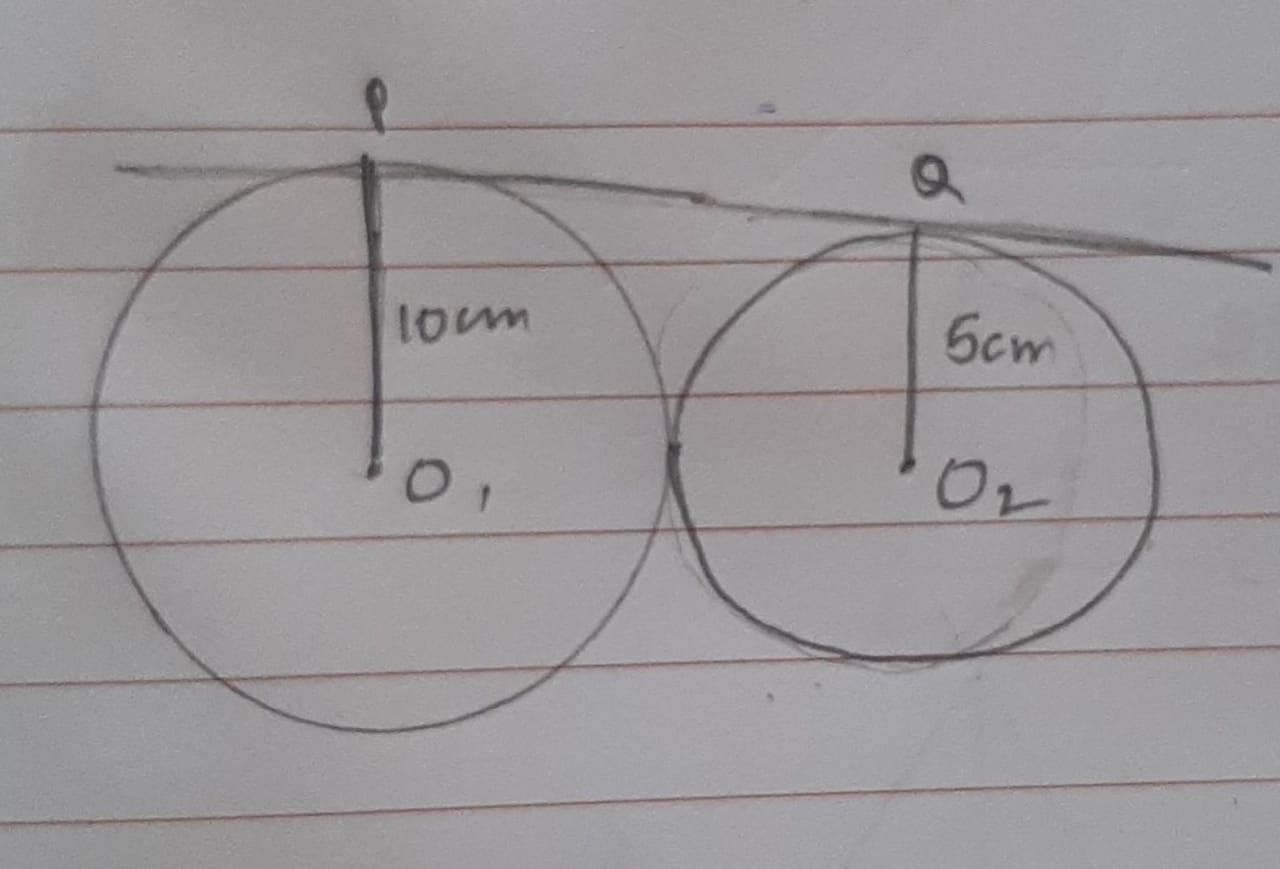 P
Q
10cm
5cm
O1
O2